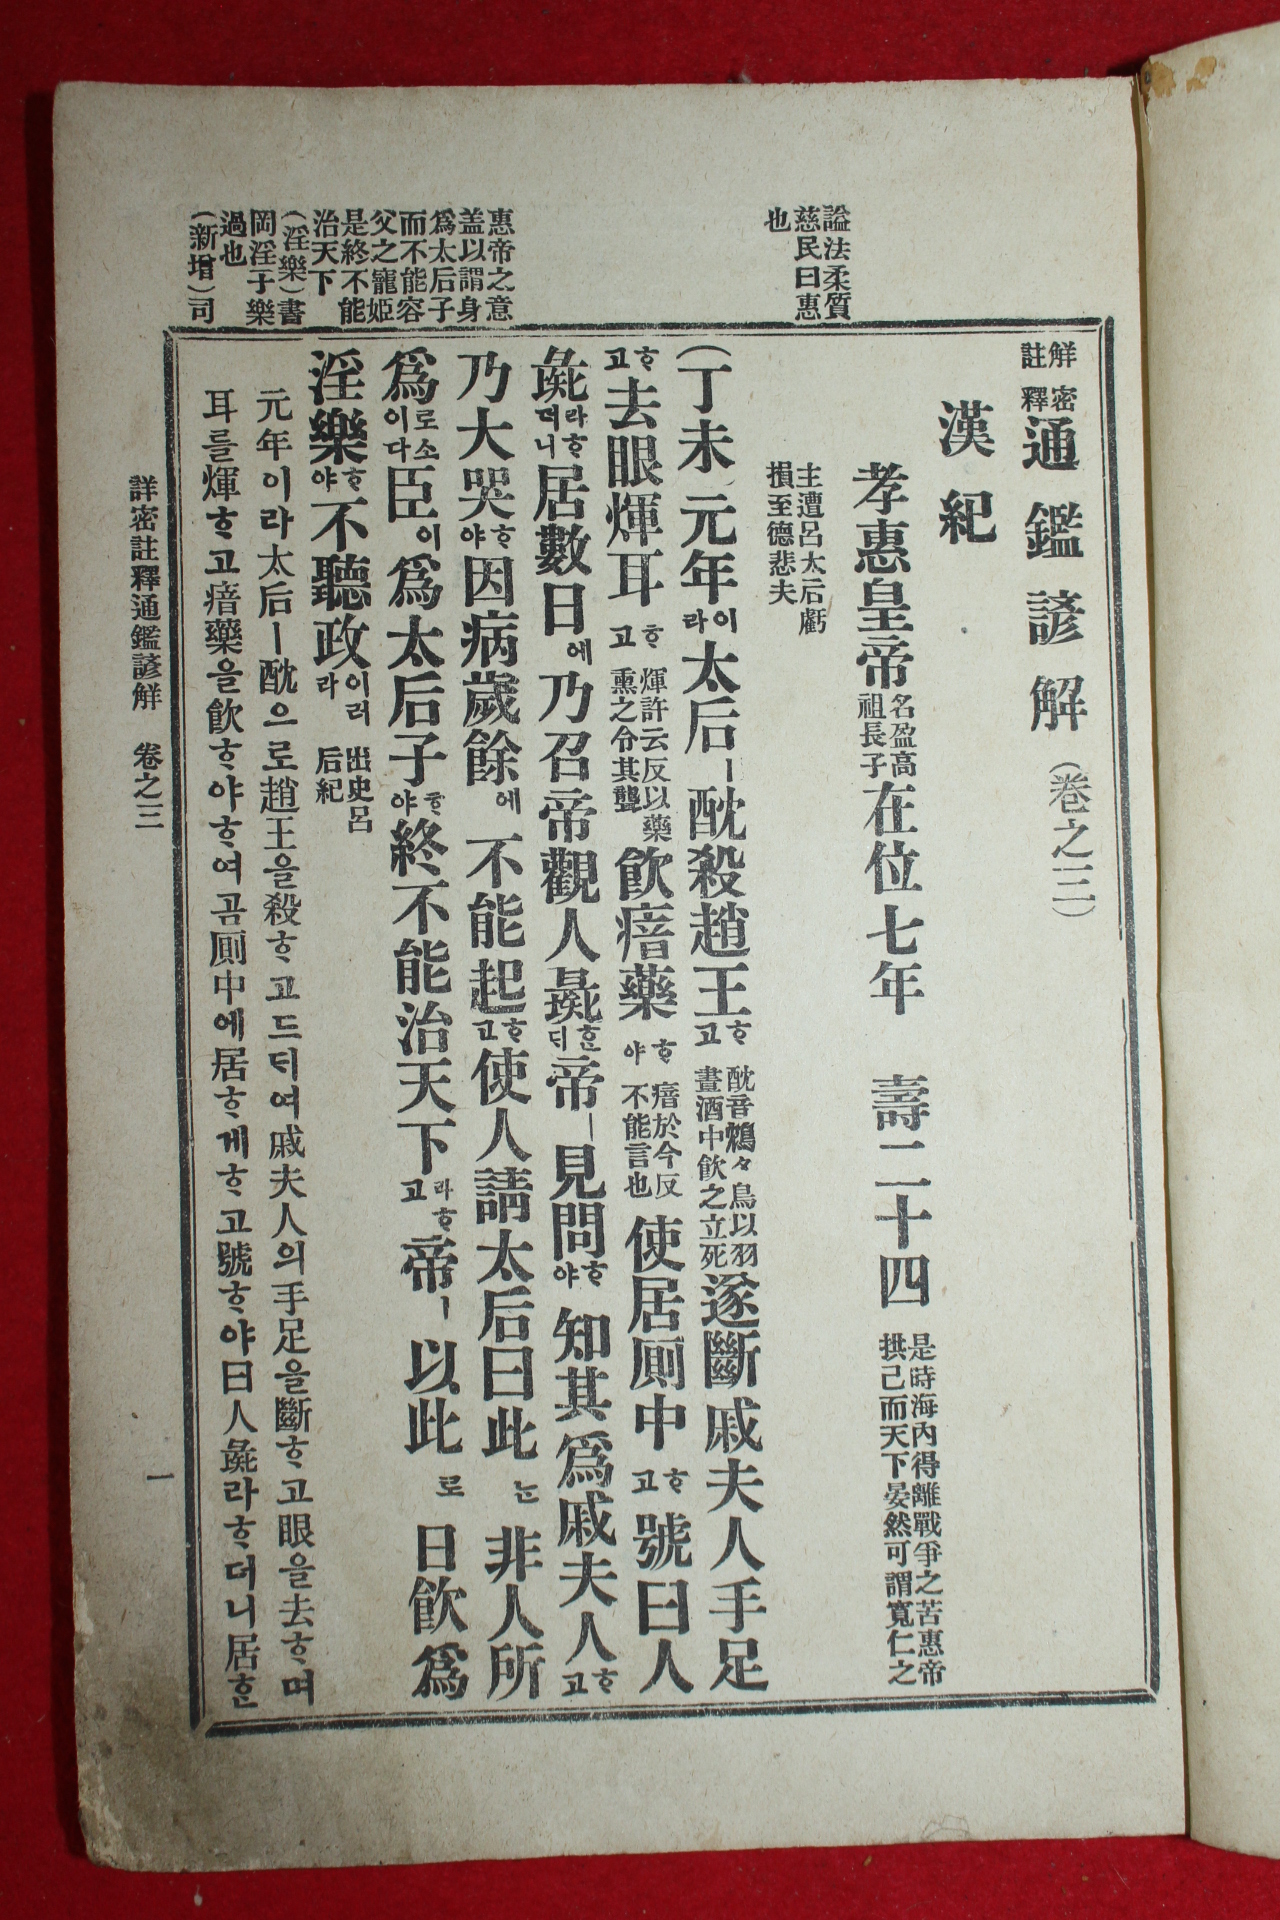 諡法柔質
慈民曰惠
也
惠帝之意
盖以謂身
爲太后子
而不能容
父之寵姬
是終不能
治天下
(淫樂)書
岡淫于樂
過也
(新增)司
詳密註釋通鑑諺解(卷之三)
漢紀
孝惠皇帝名盈高祖長子在位七年 壽二十四 是時海內得離戰爭之苦惠帝拱己而天下晏然可謂寬仁之
主遭呂太后虧損至德悲夫
(丁未)元年이라太后ㅣ酖殺趙王ᄒᆞ고酖音鴆々鳥以羽畫酒中飮之立死遂斷戚夫人手足
ᄒᆞ고去眼煇耳ᄒᆞ고煇許云反以藥熏之令其聾飮瘖藥ᄒᆞ야瘖於今反不能言也使居厠中ᄒᆞ고號曰人
彘라ᄒᆞ더니居數日에乃召帝觀人彘ᄒᆞᆫᄃᆡ帝ㅣ見問ᄒᆞ야知其爲戚夫人ᄒᆞ고
乃大哭ᄒᆞ야因病歲餘에不能起ᄒᆞ고使人請太后曰此ᄂᆞᆫ非人所
爲로소이다臣이爲太后子ᄒᆞ야終不能治天下라ᄒᆞ고帝ㅣ以此로日飮爲
淫樂ᄒᆞ야不聽政이러라出史呂后紀
元年이라太后ㅣ酖으로趙王을殺ᄒᆞ고드ᄃᆡ여戚夫人의手足을斷ᄒᆞ고眼을去ᄒᆞ며
耳를煇ᄒᆞ고瘖藥을飮ᄒᆞ야ᄒᆞ여곰厠中에居ᄒᆞ게ᄒᆞ고號ᄒᆞ야曰人彘라ᄒᆞ더니居ᄒᆞᆫ
詳密註釋通鑑諺解 卷之三
一